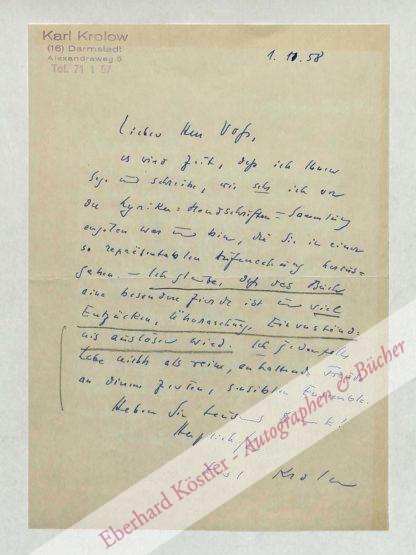 Karl Krolow
(16) Darmstadt
Alexandraweg 5
Tel. 71 1 57
1. 10. 58
Lieber Herr Voß,
es wird Zeit, daß ich Ihnen
sage und schreibe, wie sehr ich von
der Lyriker-Handschriften-Sammlung
angetan war und bin, die Sie in einer
so repräsentablen Aufmachung heraus-
gaben. – Ich glaube, daß das Buch
eine besondere Zierde ist und viel
Entzücken, Überraschung, Einverständ-
nis auslösen wird. Ich jedenfalls
habe nichts als reine, anhaltende Freude
an diesem zarten, sensiblen Ensemble.
Haben Sie tausend Dank!
Herzlich
Karl Krolow
Eberhard Köstler - Autographen & Bücher